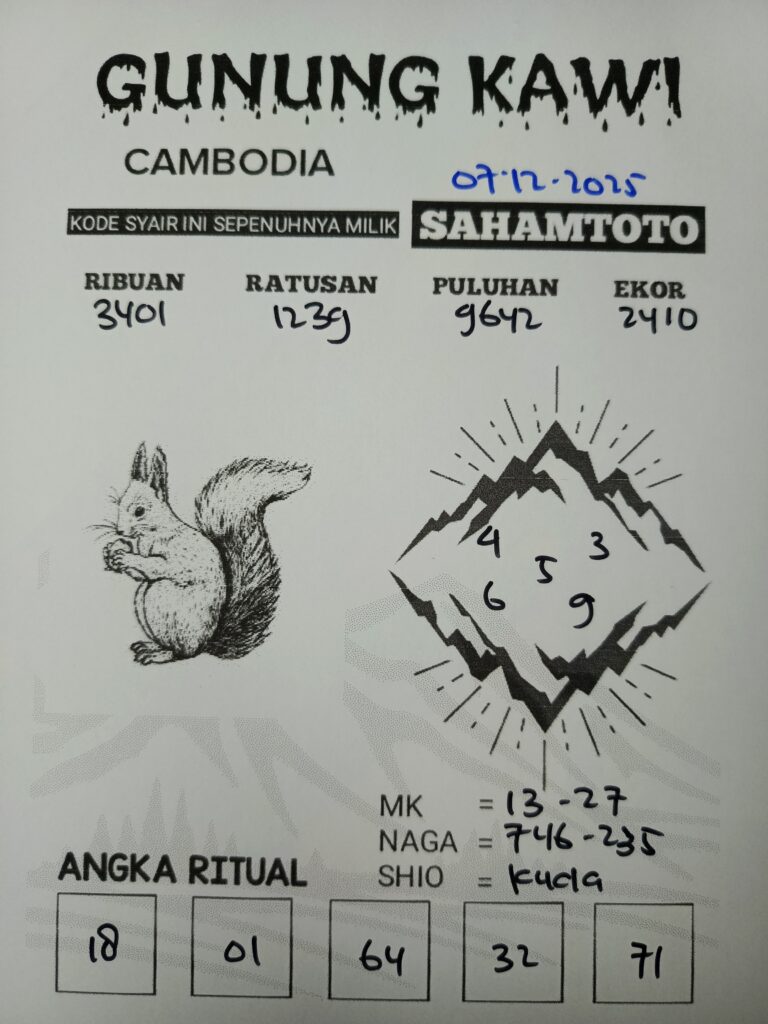 GUNUNG KAWI
CAMBODIA
07-12-2025
KODE SYAIR INI SEPENUHNYA MILIK SAHAMTOTO
RIBUAN RATUSAN PULUHAN EKOR
3401 1239 9642 2410
4 3
5
6 9
MK = 13-27
NAGA = 746-235
SHIO = Kuda
ANGKA RITUAL
18 01 64 32 71